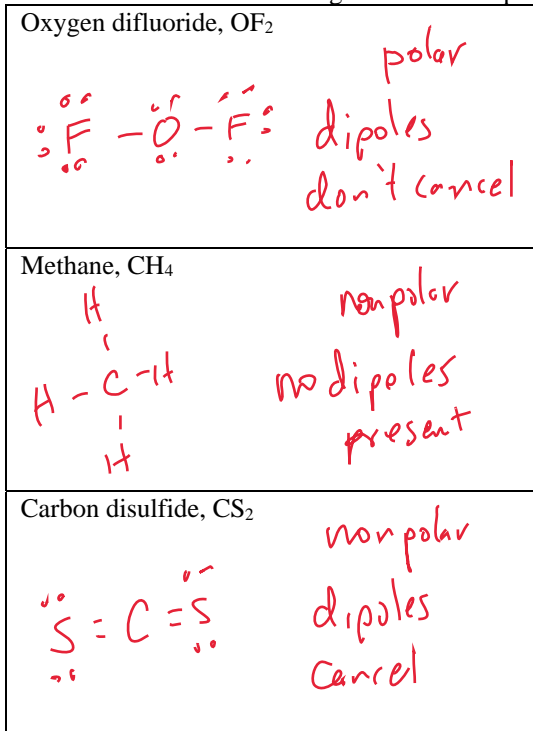 Oxygen difluoride, OF₂
polar
F - O - F
dipoles
don't cancel
Methane, CH₄
H
nonpolar
H - C - H
no dipoles
present
H
Carbon disulfide, CS₂
nonpolar
S = C = S
dipoles
cancel